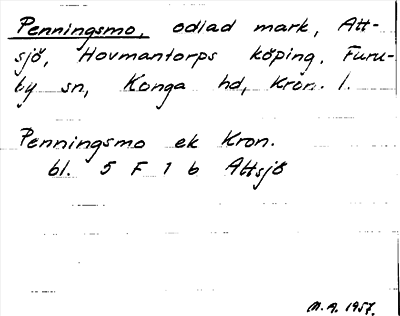 Penningsmo, odlad mark, Att-
sjö, Hovmantorps köping, Furu-
by sn, Konga hd, Kron. l.
Penningsmo ek Kron.
bl. 5 F 1 b Attsjö
M.A. 1957.